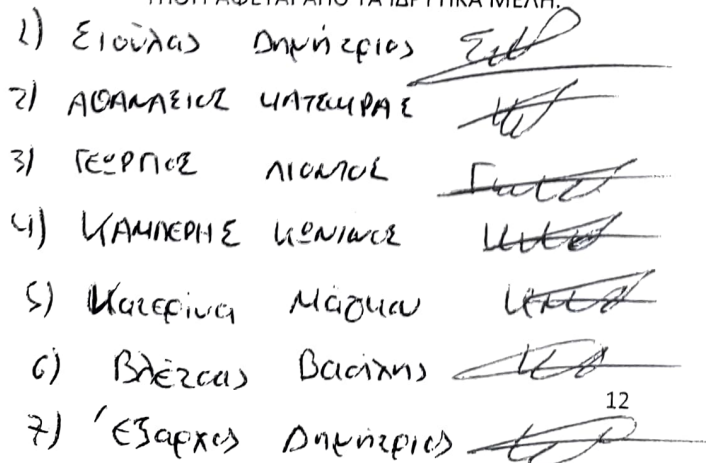 ΥΠΟΓΡΑΦΕΤΑΙ ΑΠΟ ΤΑ ΙΔΡΥΤΙΚΑ ΜΕΛΗ:
1) Σιούλας Δημήτριος
2) ΑΘΑΝΑΣΙΟΣ ΚΑΤΣΙΚΡΑΣ
3) ΓΕΩΡΓΙΟΣ ΛΙΟΝΤΟΣ
4) ΚΑΜΠΕΡΗΣ ΚΩΝ/ΝΟΣ
5) Κατερίνα
6) Βλέτσας Βασίλης
12
7) Έξαρχος Δημήτριος